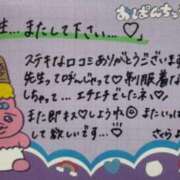 おぱんちゅ
生…まして下さい…♡」
ステキな口コミありがとうございます
先生って呼んじゃって♡制服着な
しちゃって…エチエチでしたネ♡
また即キス♡しようね♡またいっぱ
して欲しいです…♡
さくらより